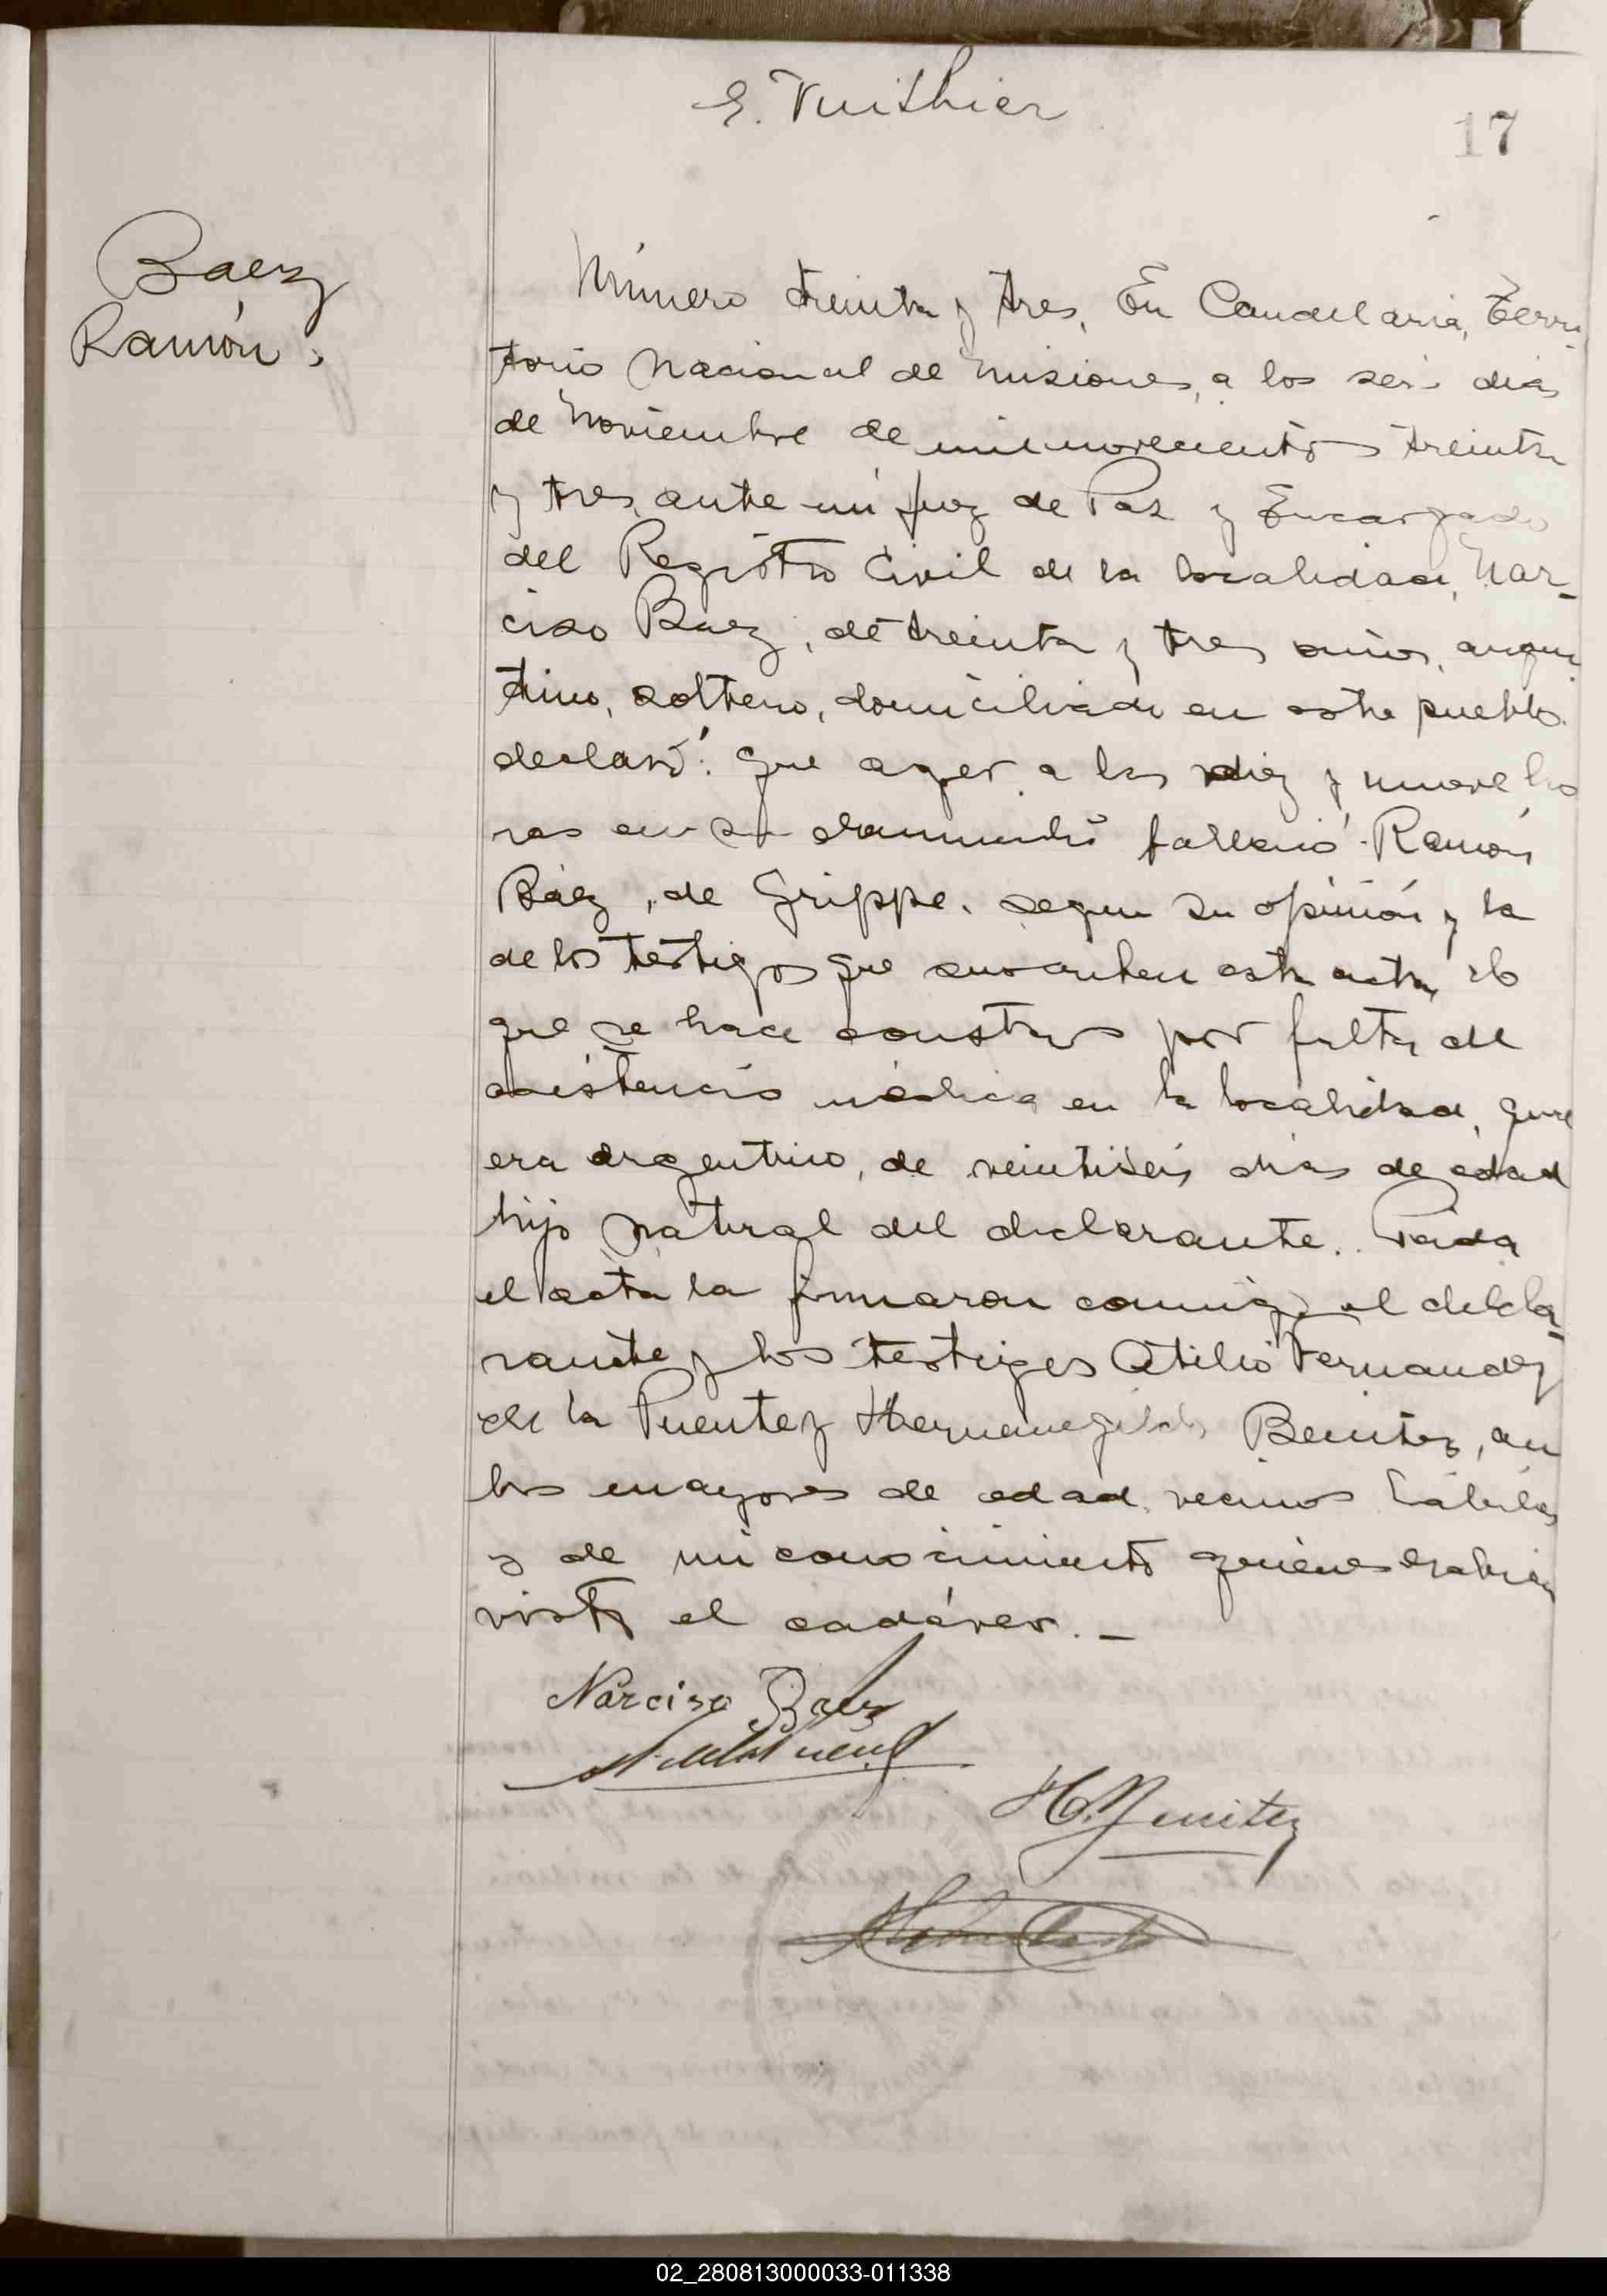 E. Vuithier
17
Baez
Ramón.
Número treinta y tres. En Candelaria, Terri
torio Nacional de Misiones, a los seis dias
de Noviembre de mil novecientos treinta
y tres, ante mi Juez de Paz y Encargado
del Registro Civil de la localidad, Nar-
ciso Baez, de treinta y tres años, argen
tino, soltero, domiciliado en este pueblo
declaró: que ayer a las diez y nueve ho
ras en su falleció Ramón
Báez, de Grippe, segun su opinión y la
de los testigos que suscriben esta acta, lo
que se hace constar por falta de
asistencia médica en la localidad, que
era argentino, de veintiseis dias de edad
hijo natural del declarante. 
el acta la firmaron conmigo el decla-
rante y los testigos Atilio Fernandez
de la Puente y Hermenegildo Benitez, am
bos mayores de edad, vecinos hábiles
y de mi conocimiento quienes habian
visto el cadáver. _
Narciso Baez
H. Benitez
02_280813000033-011338